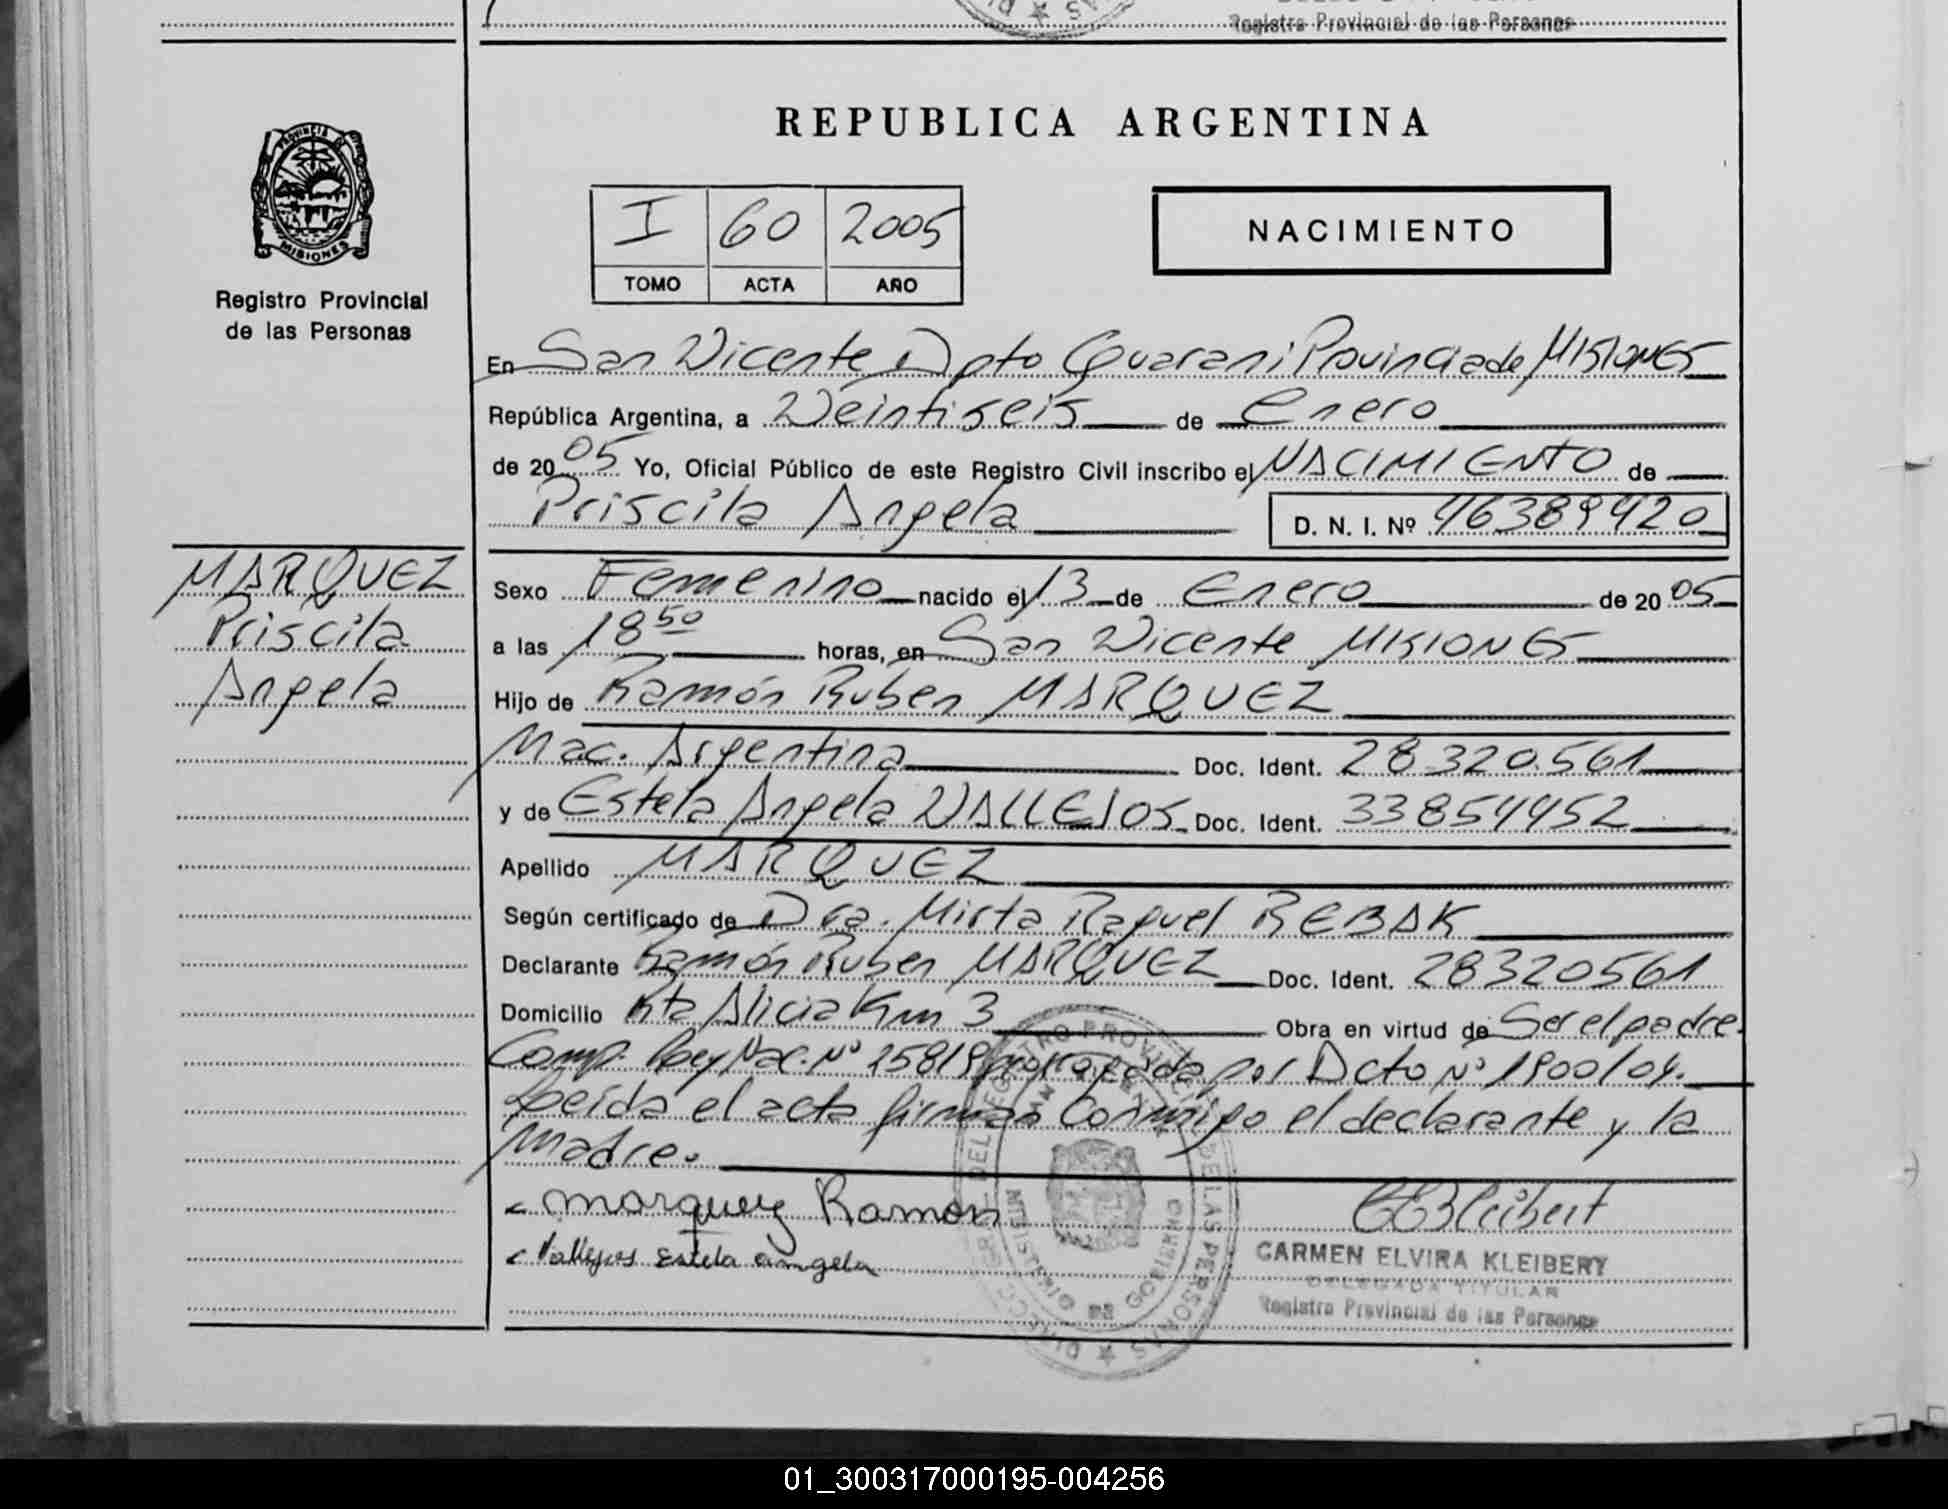 Registro Provincial de las Personas
REPUBLICA ARGENTINA
PROVINCIA
MISIONES
Registro Provincial
de las Personas
I 60 2005
TOMO ACTA AÑO
NACIMIENTO
En San Vicente Dpto Guarani Provincia de MISIONES
República Argentina, a Veintiseis de Enero
de 2005 Yo, Oficial Público de este Registro Civil inscribo el NACIMIENTO de
Priscila Angela D. N. I. Nº 46389420
MARQUEZ
Priscila
Angela
Sexo Femenino nacido el 13 de Enero de 2005
a las 18 50 horas, en San Vicente MISIONES
Hijo de Ramón Ruben MARQUEZ
Nac. Argentina Doc. Ident. 28.320.561
y de Estela Angela VALLEJOS Doc. Ident. 33854452
Apellido MARQUEZ
Según certificado de Dra. Mirta Raquel REBAK
Declarante Ramón Ruben MARQUEZ Doc. Ident. 28320561
Domicilio Pta Alicia Km 3 Obra en virtud de Ser el padre
Comp. Ley Nac. Nº 25819 prorrogada por Dcto Nº 1900/04.
Leída el acta firman conmigo el declarante y la
Madre.
Marquez Ramon
Vallejos Estela angela
CARMEN ELVIRA KLEIBERT
DELEGADA TITULAR
Registro Provincial de las Personas
MINISTERIO DE GOBIERNO
01_300317000195-004256